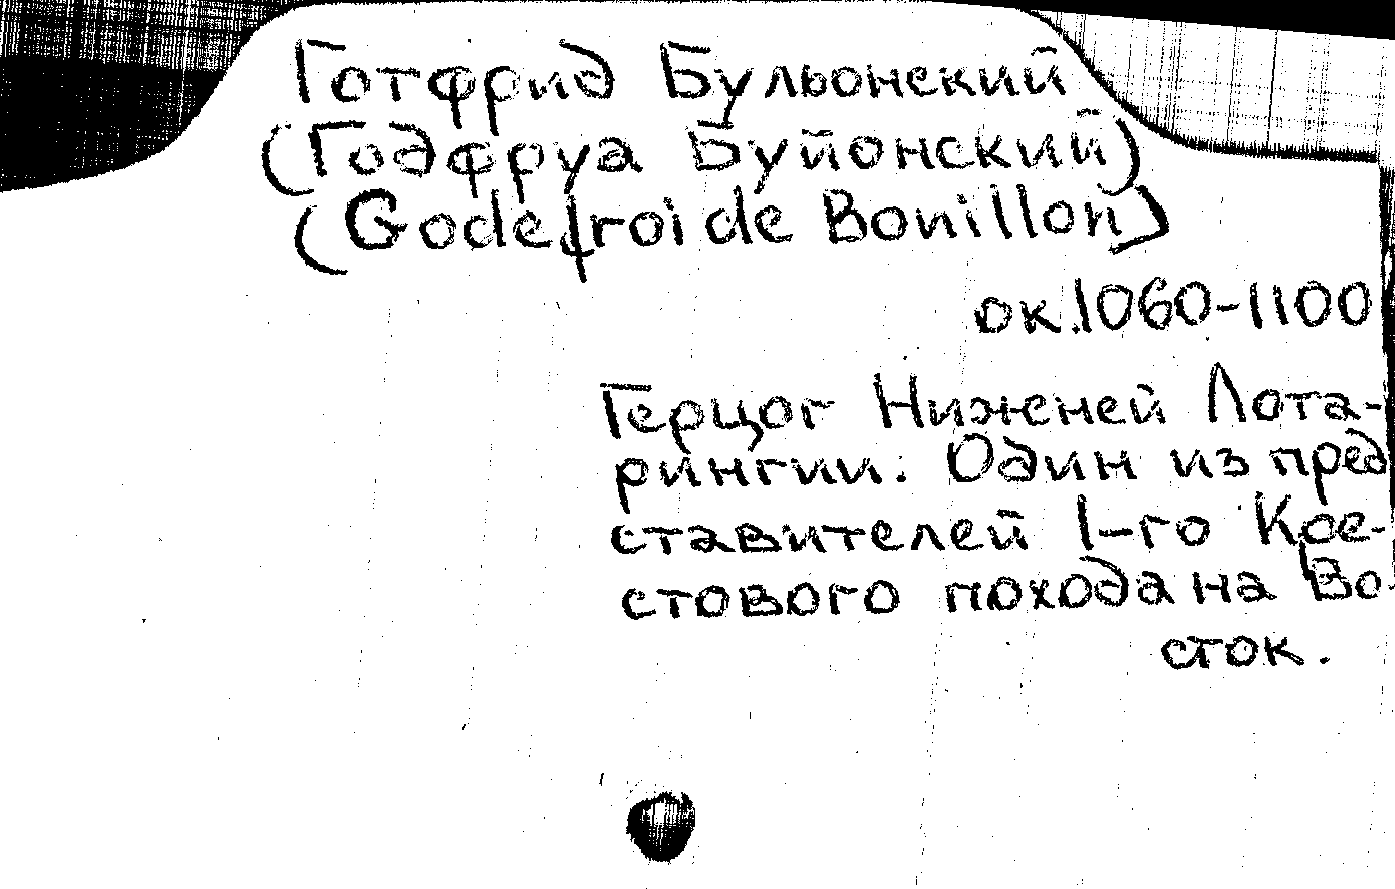 Готфрид Бульонский
(Годфруа Буйонский)
(Godefroi de Bonillon)
ок.1060-1100
Герцог Нижней Лота-
рингии. Один из пред
ставителей 1-го Кре-
стового похода на Во-
сток.